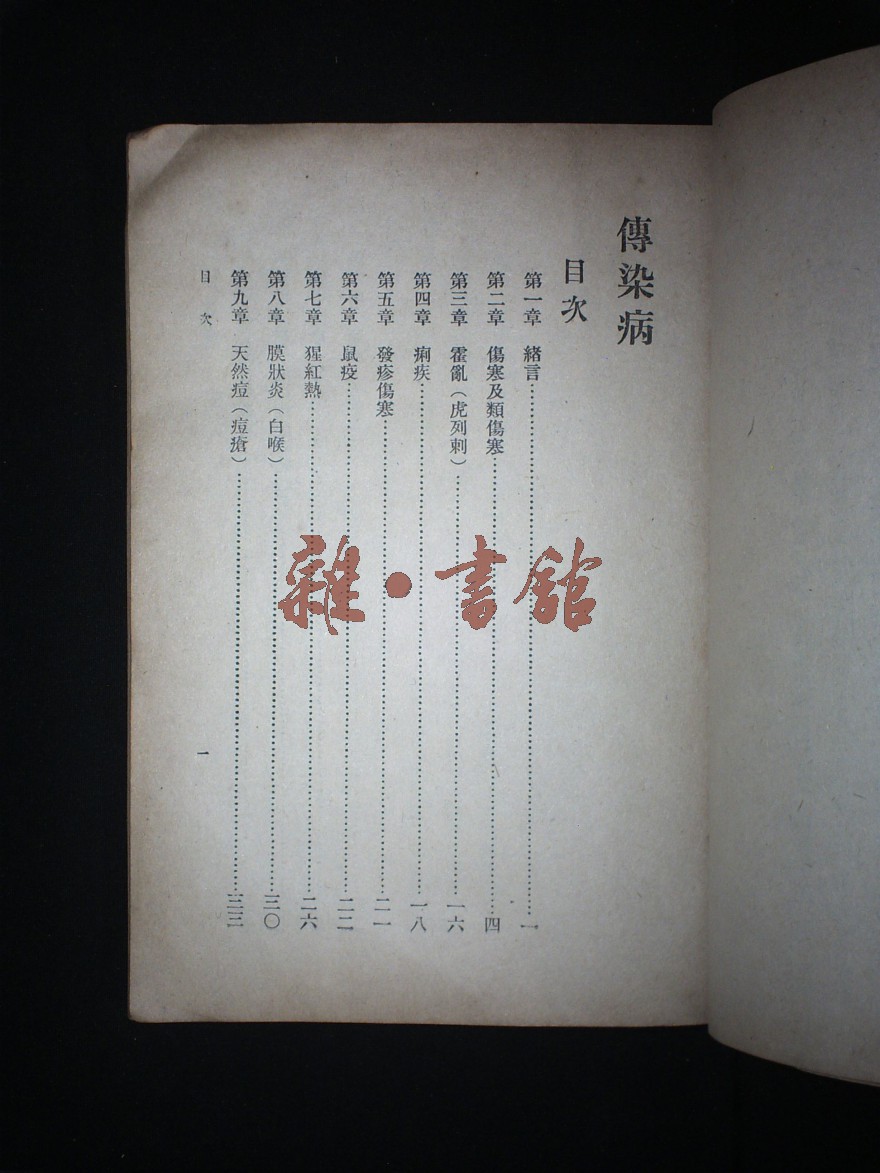 傳染病
目次
第一章 緒言……一
第二章 傷寒及類傷寒……四
第三章 霍亂（虎列剌）……一六
第四章 痢疾……一八
第五章 發疹傷寒……二一
第六章 鼠疫……二二
第七章 猩紅熱……二六
第八章 膜狀炎（白喉）……三〇
第九章 天然痘（痘瘡）……三三
目次 一
雜·書館